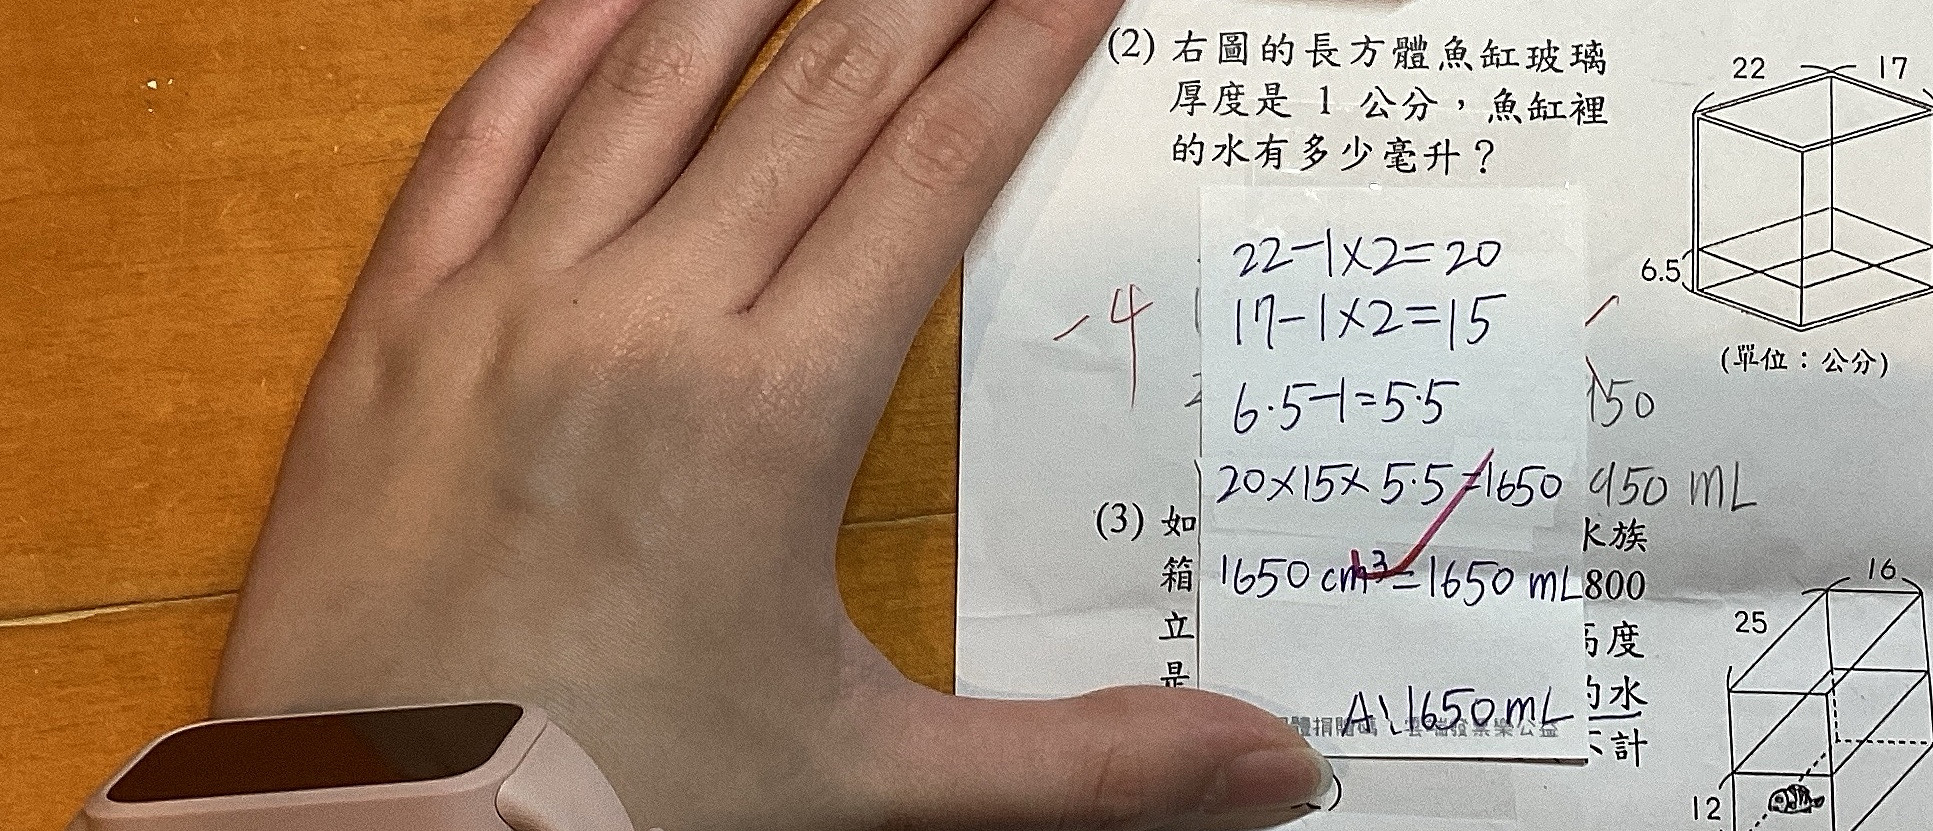 (2) 右圖的長方體魚缸玻璃
厚度是 1 公分，魚缸裡
的水有多少毫升？
22
17
6.5
(單位：公分)
22-1×2=20
17-1×2=15
6.5-1=5.5
20×15×5.5=1650
1650 cm³=1650 mL
A: 1650 mL
-4
150
950 mL
(3) 如
箱
立
是
族
800
度
水
計
16
25
12